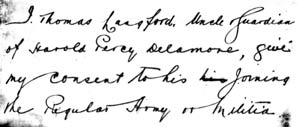 I. Thomas Langford. Uncle & Guardian
of Harold Percy Delamore, give
my consent to his his Joining
the Regular Army or Militia